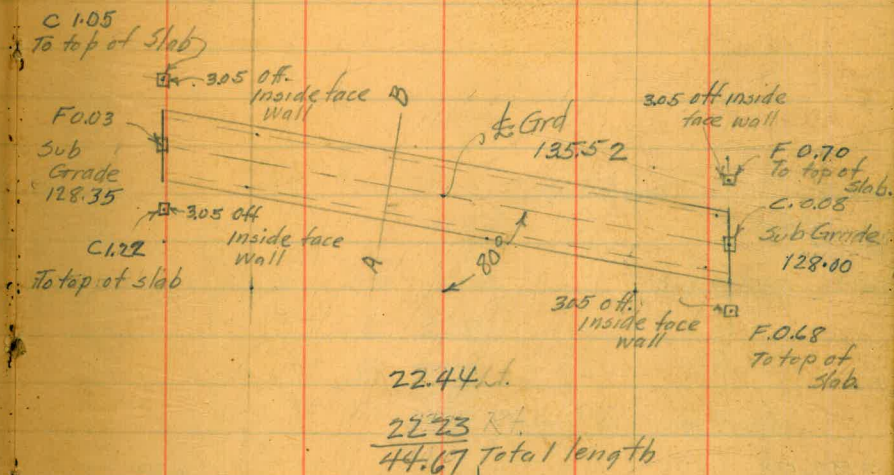 C 1.05
To top of Slab
3.05 off.
Inside face
wall
F 0.03
Sub
Grade
128.35
3.05 off
Inside face
wall
C 1.22
To top of slab
B
A
℄ Grd
135.52
80°
3.05 off inside
face wall
F 0.70
To top of
slab.
C. 0.08
Sub Grade
128.00
3.05 off.
Inside face
wall
F. 0.68
To top of
slab.
22.44 Lt.
22.23 Rt.
44.67 Total length